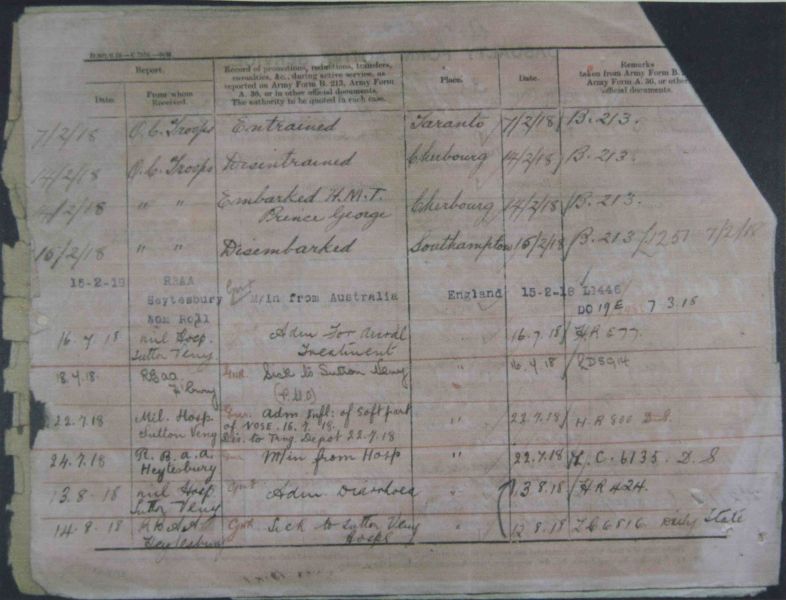 Report.
Record of promotions, reductions, transfers,
casualties, &c., during active service, as
reported on Army Form B. 213, Army Form
A. 36, or in other official documents.
The authority to be quoted in each case.
Place.
Date.
Remarks
taken from Army Form B.
Army Form A. 36, or other
official documents.
Date.
From whom
Received.
7/2/18 O.C. Troops Entrained Taranto 7/2/18 B. 213.
14/2/18 O.C. Troops Disentrained Cherbourg 14/2/18 B. 213.
14/2/18 " " Embarked H.M.T. Cherbourg 14/2/18 B. 213.
Prince George
15/2/18 " " Disembarked Southampton 15/2/18 B. 213/1251 7/2/18
15-2-18 RBAA M/in from Australia England 15-2-18 L1446
Heytesbury
Nom Roll
DO 19E 7 3.18
16.7.18 Mil Hosp. Adm For 16.7.18 HR 577
Sutton Veny Treatment
18.4.18 RBAA Gnr. Sick to Sutton Veny " 16.4.18 LD5914
22.7.18 Mil. Hosp Gnr. Adm Infl: of soft part " 22.7.18 H.R 800 D.S.
Sutton Veny of NOSE. 16.7.18.
Dis. to Trng. Depot 22.7.18
24.7.18 R.B.A.A M/in from Hosp " 22.7.18 6135. D.S
Heytesbury
13.8.18 Mil Hosp Gnr Adm Diarrhoea " 13.8.18 HR 424.
Sutton Veny
14.8.18 RBAA Gnr Sick to Sutton Veny " 12.8.18 6816 Daily State
Heytesbury Hosp